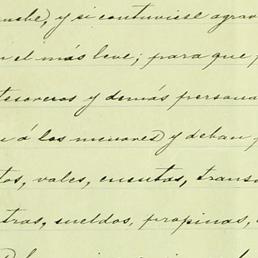 y si contuviese agrav
el más leve; para que
tesoreros y demás persona
á los menores y deban
tos, vales, cuentas, transa
tras, sueldos, propinas,